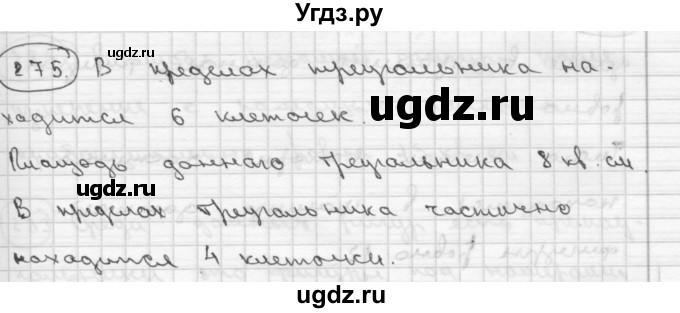 Угдз.ру
275. В пределах треугольника на-
ugdz.ru
ходится 6 клеточек.
ugdz.ru
Площадь данного треугольника 8 кв. см.
ugdz.ru
В пределах треугольника частично
находится 4 клеточки.
ugdz.ru
ugdz.ru